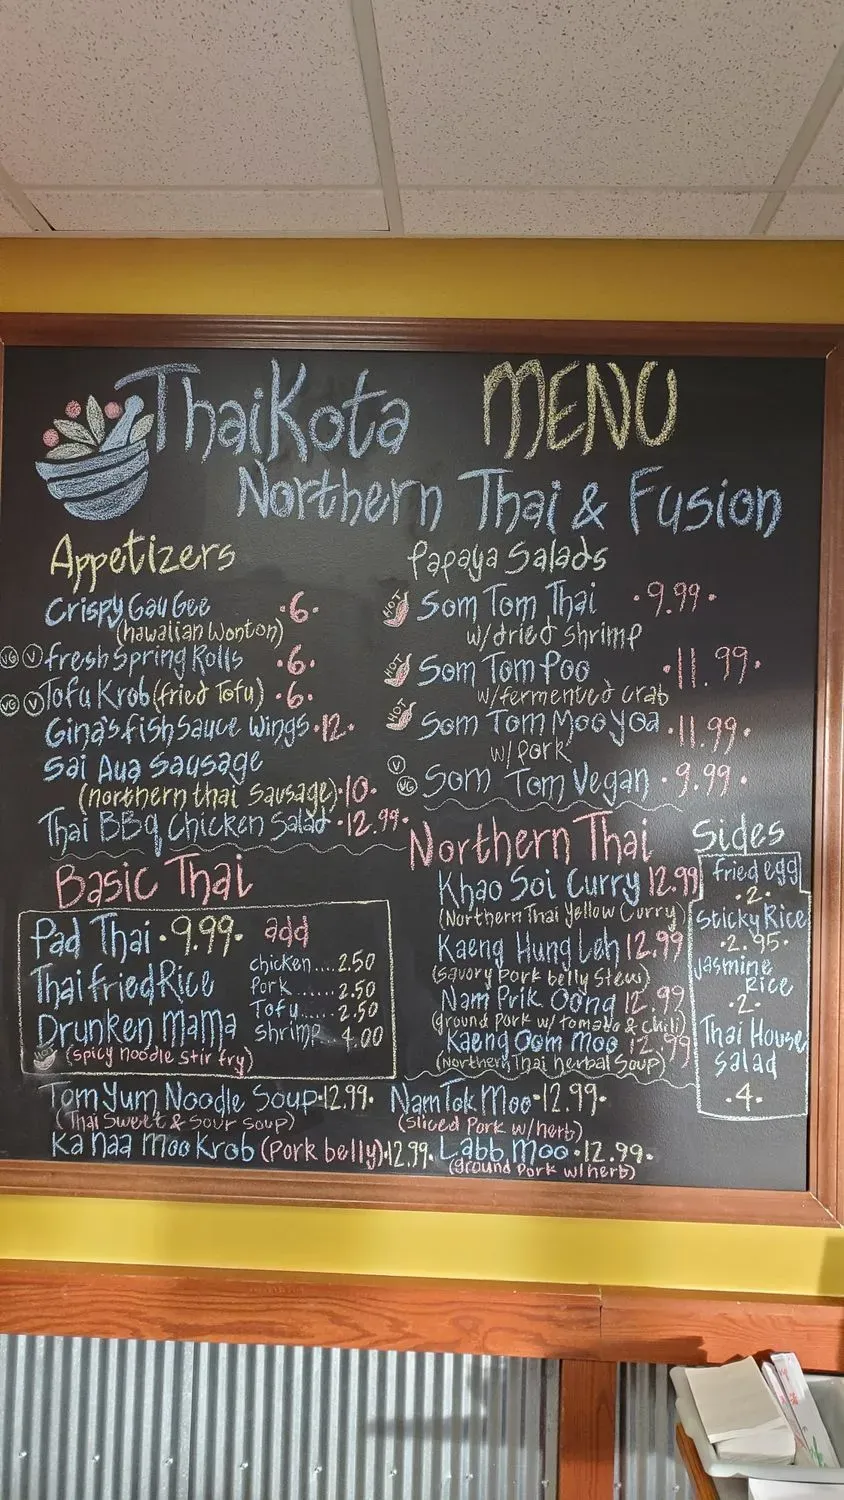 ThaiKota MENU
Northern Thai & Fusion
Appetizers
Crispy Gau Gee •6•
(hawaiian Wonton)
VG V fresh Spring Rolls •6•
VG V Tofu Krob (fried Tofu) •6•
Gina's fish Sauce Wings •12•
Sai Aua Sausage
(northern thai Sausage) •10•
Thai BBq Chicken Salad •12.99•
Papaya Salads
HOT Som Tom Thai •9.99•
w/dried Shrimp
HOT Som Tom Poo •11.99•
w/fermented crab
HOT Som Tom Moo Yoa •11.99•
w/pork
V VG Som Tom Vegan •9.99•
Basic Thai
Pad Thai •9.99•
Thai fried Rice
Drunken Mama
HOT (spicy noodle stir fry)
add
chicken....2.50
Pork.......2.50
Tofu.......2.50
shrimp..4.00
Northern Thai
Khao Soi Curry 12.99
(Northern Thai Yellow Curry)
Kaeng Hung Leh 12.99
(savory pork belly Stew)
Nam Prik Oong 12.99
(ground pork w/ tomato & chili)
Kaeng Oom Moo 12.99
(Northern Thai herbal Soup)
Sides
fried egg
•2•
Sticky Rice
•2.95•
Jasmine
Rice
•2•
Thai House
Salad
•4•
Tom Yum Noodle Soup •12.99•
(Thai Sweet & Sour Soup)
Ka Naa Moo Krob (Pork belly) •12.99•
Nam Tok Moo •12.99•
(Sliced Pork w/herb)
Labb Moo •12.99•
(ground Pork w/herb)